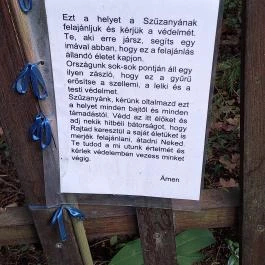 Ezt a helyet a Szűzanyának
felajánljuk és kérjük a védelmét.
Te, aki erre jársz, segíts egy
imával abban, hogy ez a felajánlás
állandó életet kapjon.
Országunk sok-sok pontján áll egy
ilyen zászló, hogy ez a gyűrű
erősítse a szellemi, a lelki és a
testi védelmet.
Szűzanyánk, kérünk oltalmazd ezt
a helyet minden bajtól és minden
támadástól. Védd az itt élőket és
adj nekik hitbéli bátorságot, hogy
Rajtad keresztül a saját életüket is
merjék felajánlani, átadni Neked.
Te tudod a mi utunk értelmét és
kérlek védelemben vezess minket
végig.
Ámen